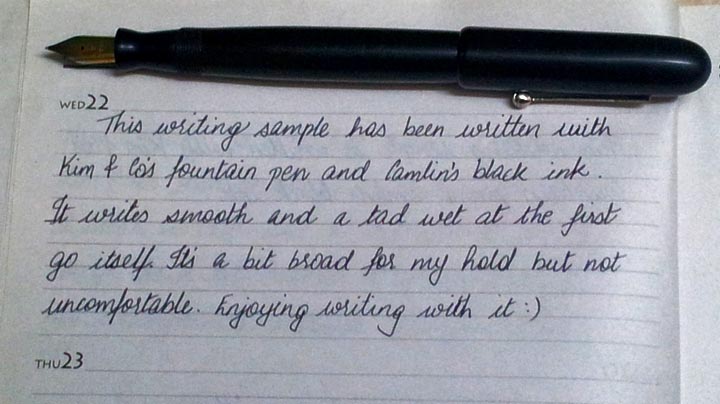 WED 22
This writing sample has been written with
Kim & Co's fountain pen and Camlin's black ink.
It writes smooth and a tad wet at the first
go itself. It's a bit broad for my hold but not
uncomfortable. Enjoying writing with it :)
THU 23